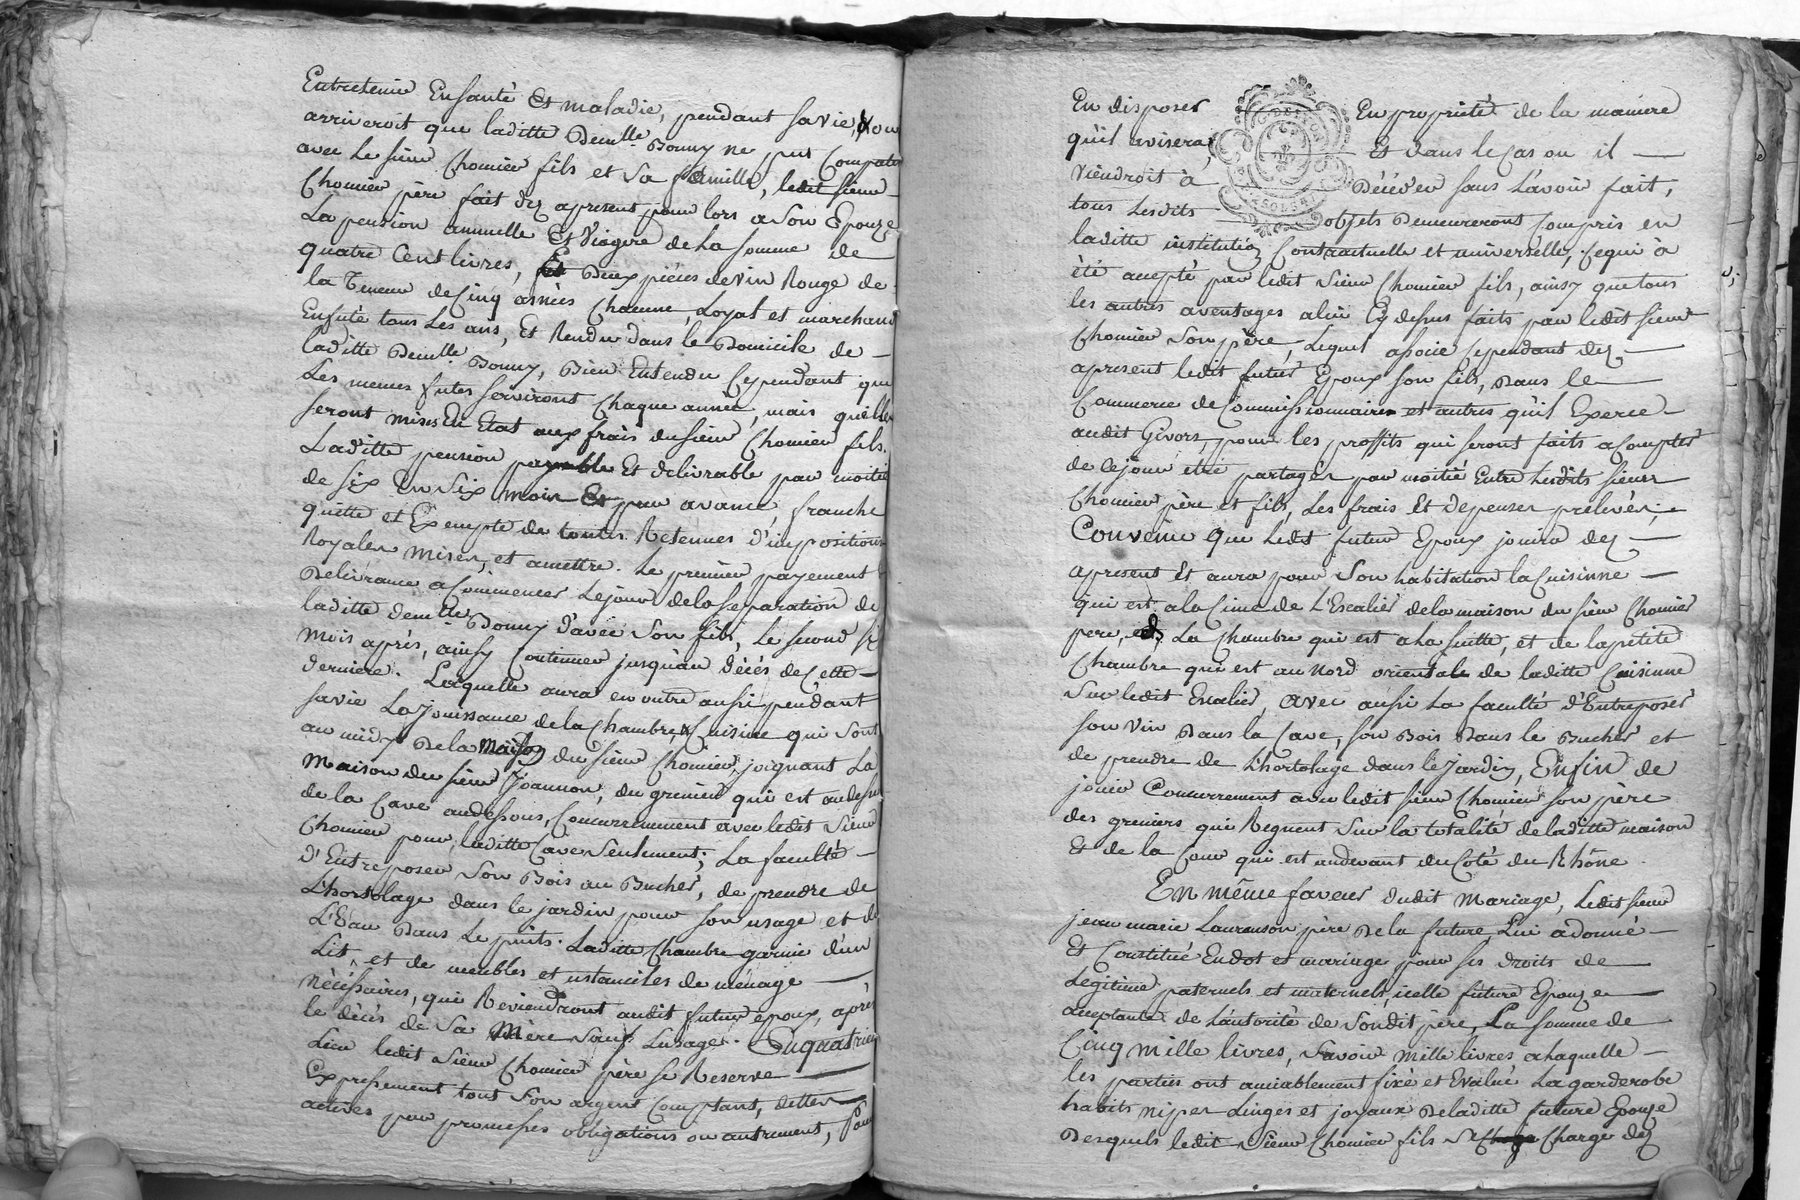 Entretenir En santé Et maladie, pendant sa vie, &
arriveroit que laditte Demlle Bonny ne put Compatir
avec Le sieur Chomier fils et sa famille, ledit sieur
Chomier père fait dez apresent pour lors a son Epouze
La pension annuelle Et Viagere de La somme de
quatre Cent livres, Et Deux pièces de vin Rouge de
la Teneur de Cinq asnées Chacune, Loyal et marchand
Enfuté tous Les ans, Et Rendu dans le Domicile de
laditte Demlle Bonny, Bien Entendu Cependant que
Les memes futes serviront Chaque année, mais quelles
seront mises En Etat aux frais du sieur Chomier fils.
Laditte pension payable Et delivrable par moitié
de six En six mois Et par avance, franche
quitte et Exempte de toutes Retenues d'impositions
Royales mises, et amettre. Le premier payement
Delivrance a Commencer Le jour de la separation de
laditte demlle Bonny d'avec Son fils, Le second six
mois après, ainsy Continuer jusqu'au décés de Cette
derniere. Laquelle aura en outre aussi pendant
sa vie La jouissance de la Chambre, & Cuisine qui sont
au midy De la Maison du sieur Chomier, joignant La
Maison du sieur Joannon, du grenier qui est au dessus
de la Cave audessous, Concurremment avec ledit sieur
Chomier pour laditte Cave Seulement; La faculté
d'Entreposer son Bois au Bucher, de prendre de
L'hortolage dans le jardin pour son usage et de
L'Eau Dans Le puits. Laditte Chambre garnie d'un
Lit, et de meubles et ustanciles de ménage
nécéssaires, qui Reviendront audit futur epoux, après
le décès de Sa Mere Sauf Lusage. En quatrieme
Lieu ledit sieur Chomier père se Reserve
Expressement tout son argent Comptant, dettes
actives par promesses obligations ou autrement, Pour
En disposer En proprieté de la maniere
qu'il avisera, Et dans le Cas ou il
Viendroit à Décéder sans L'avoir fait,
tous Lesdits objets Demeureront Compris en
laditte institution Contractuelle et universelle, Ce qui à
été accepté par ledit sieur Chomier fils, ainsy que tous
les autres aventages a lui Cy dessus faits par ledit sieur
Chomier Son père, Lequel associe Cependant dez
apresent ledit futur Epoux son fils, Dans le
Commerce de Commissionnaires et autres qu'il Exerce
audit Givors, pour les proffits qui seront faits aCompter
de Cejour etre partagés par moitié Entre Lesdits sieurs
Chomier père et fils, Les frais Et depenses prélevés;
Convenu que Ledit futur Epoux jouira dez
apresent Et aura pour Son habitation la Cuisinne
qui est a la Cime de L'Escalier de la maison du sieur Chomier
pere, La Chambre qui est a La suitte, et de la petite
Chambre qui est au Nord orientale de laditte Cuisinne
Sur ledit Escalier, avec aussi La faculté d'Entreposer
son vin Dans la Cave, son Bois Dans le Bucher et
de prendre de L'hortolage dans le jardin, Enfin de
jouir Concurremment avec ledit sieur Chomier son père
des greniers qui Regnent Sur la totalité de laditte maison
Et de la Cour qui est audevant du Coté du Rhône.
En même faveur dudit Mariage, Ledit sieur
jean marie Laurenson père De la future Lui a donné
Et Constitué En dot et mariage pour ses droits de
Légitime paternels et maternels, icelle future Epouze
acceptante de L'autorité de Sondit père, La somme de
Cinq mille livres, Savoir mille livres a laquelle
les parties ont amiablement fixé et Evalué La garderobe
habits nipes Linges et joyaux De laditte future Epouze
Desquels ledit Sieur Chomier fils Se Charge dez